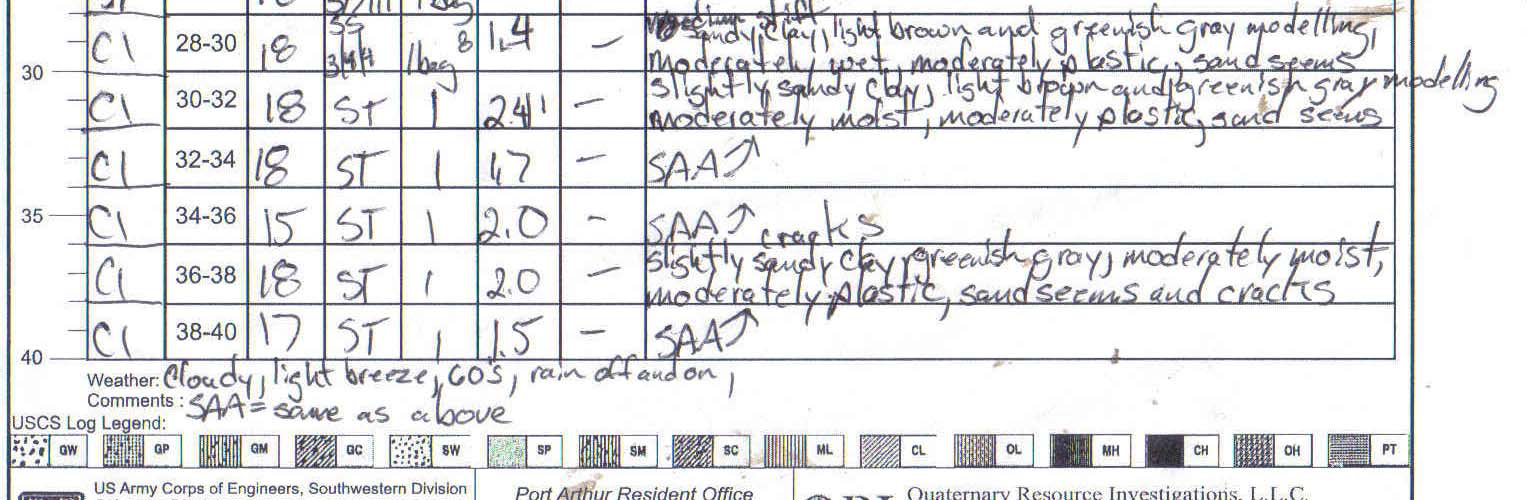 SS
medium stiff
CI 28-30 18 3/4/4 8 1.4 - sandy clay, light brown and greenish gray modelling,
1bag moderately wet, moderately plastic, sand seems
30
slightly sandy clay, light brown and greenish gray modelling
CI 30-32 18 ST 1 2.41 -
moderately moist, moderately plastic, sand seems
CI 32-34 18 ST 1 1.7 - SAA
35 CI 34-36 15 ST 1 2.0 - SAA cracks
slightly sandy clay, greenish gray, moderately moist,
CI 36-38 18 ST 1 2.0 -
moderately plastic, sand seems and cracks
CI 38-40 17 ST 1 1.5 - SAA
40
Weather: Cloudy, light breeze, 60's, rain off and on,
Comments : SAA = same as above
USCS Log Legend:
GW GP GM GC SW SP SM SC ML CL OL MH CH OH PT
US Army Corps of Engineers, Southwestern Division
Port Arthur Resident Office
Quaternary Resource Investigations, L.L.C.